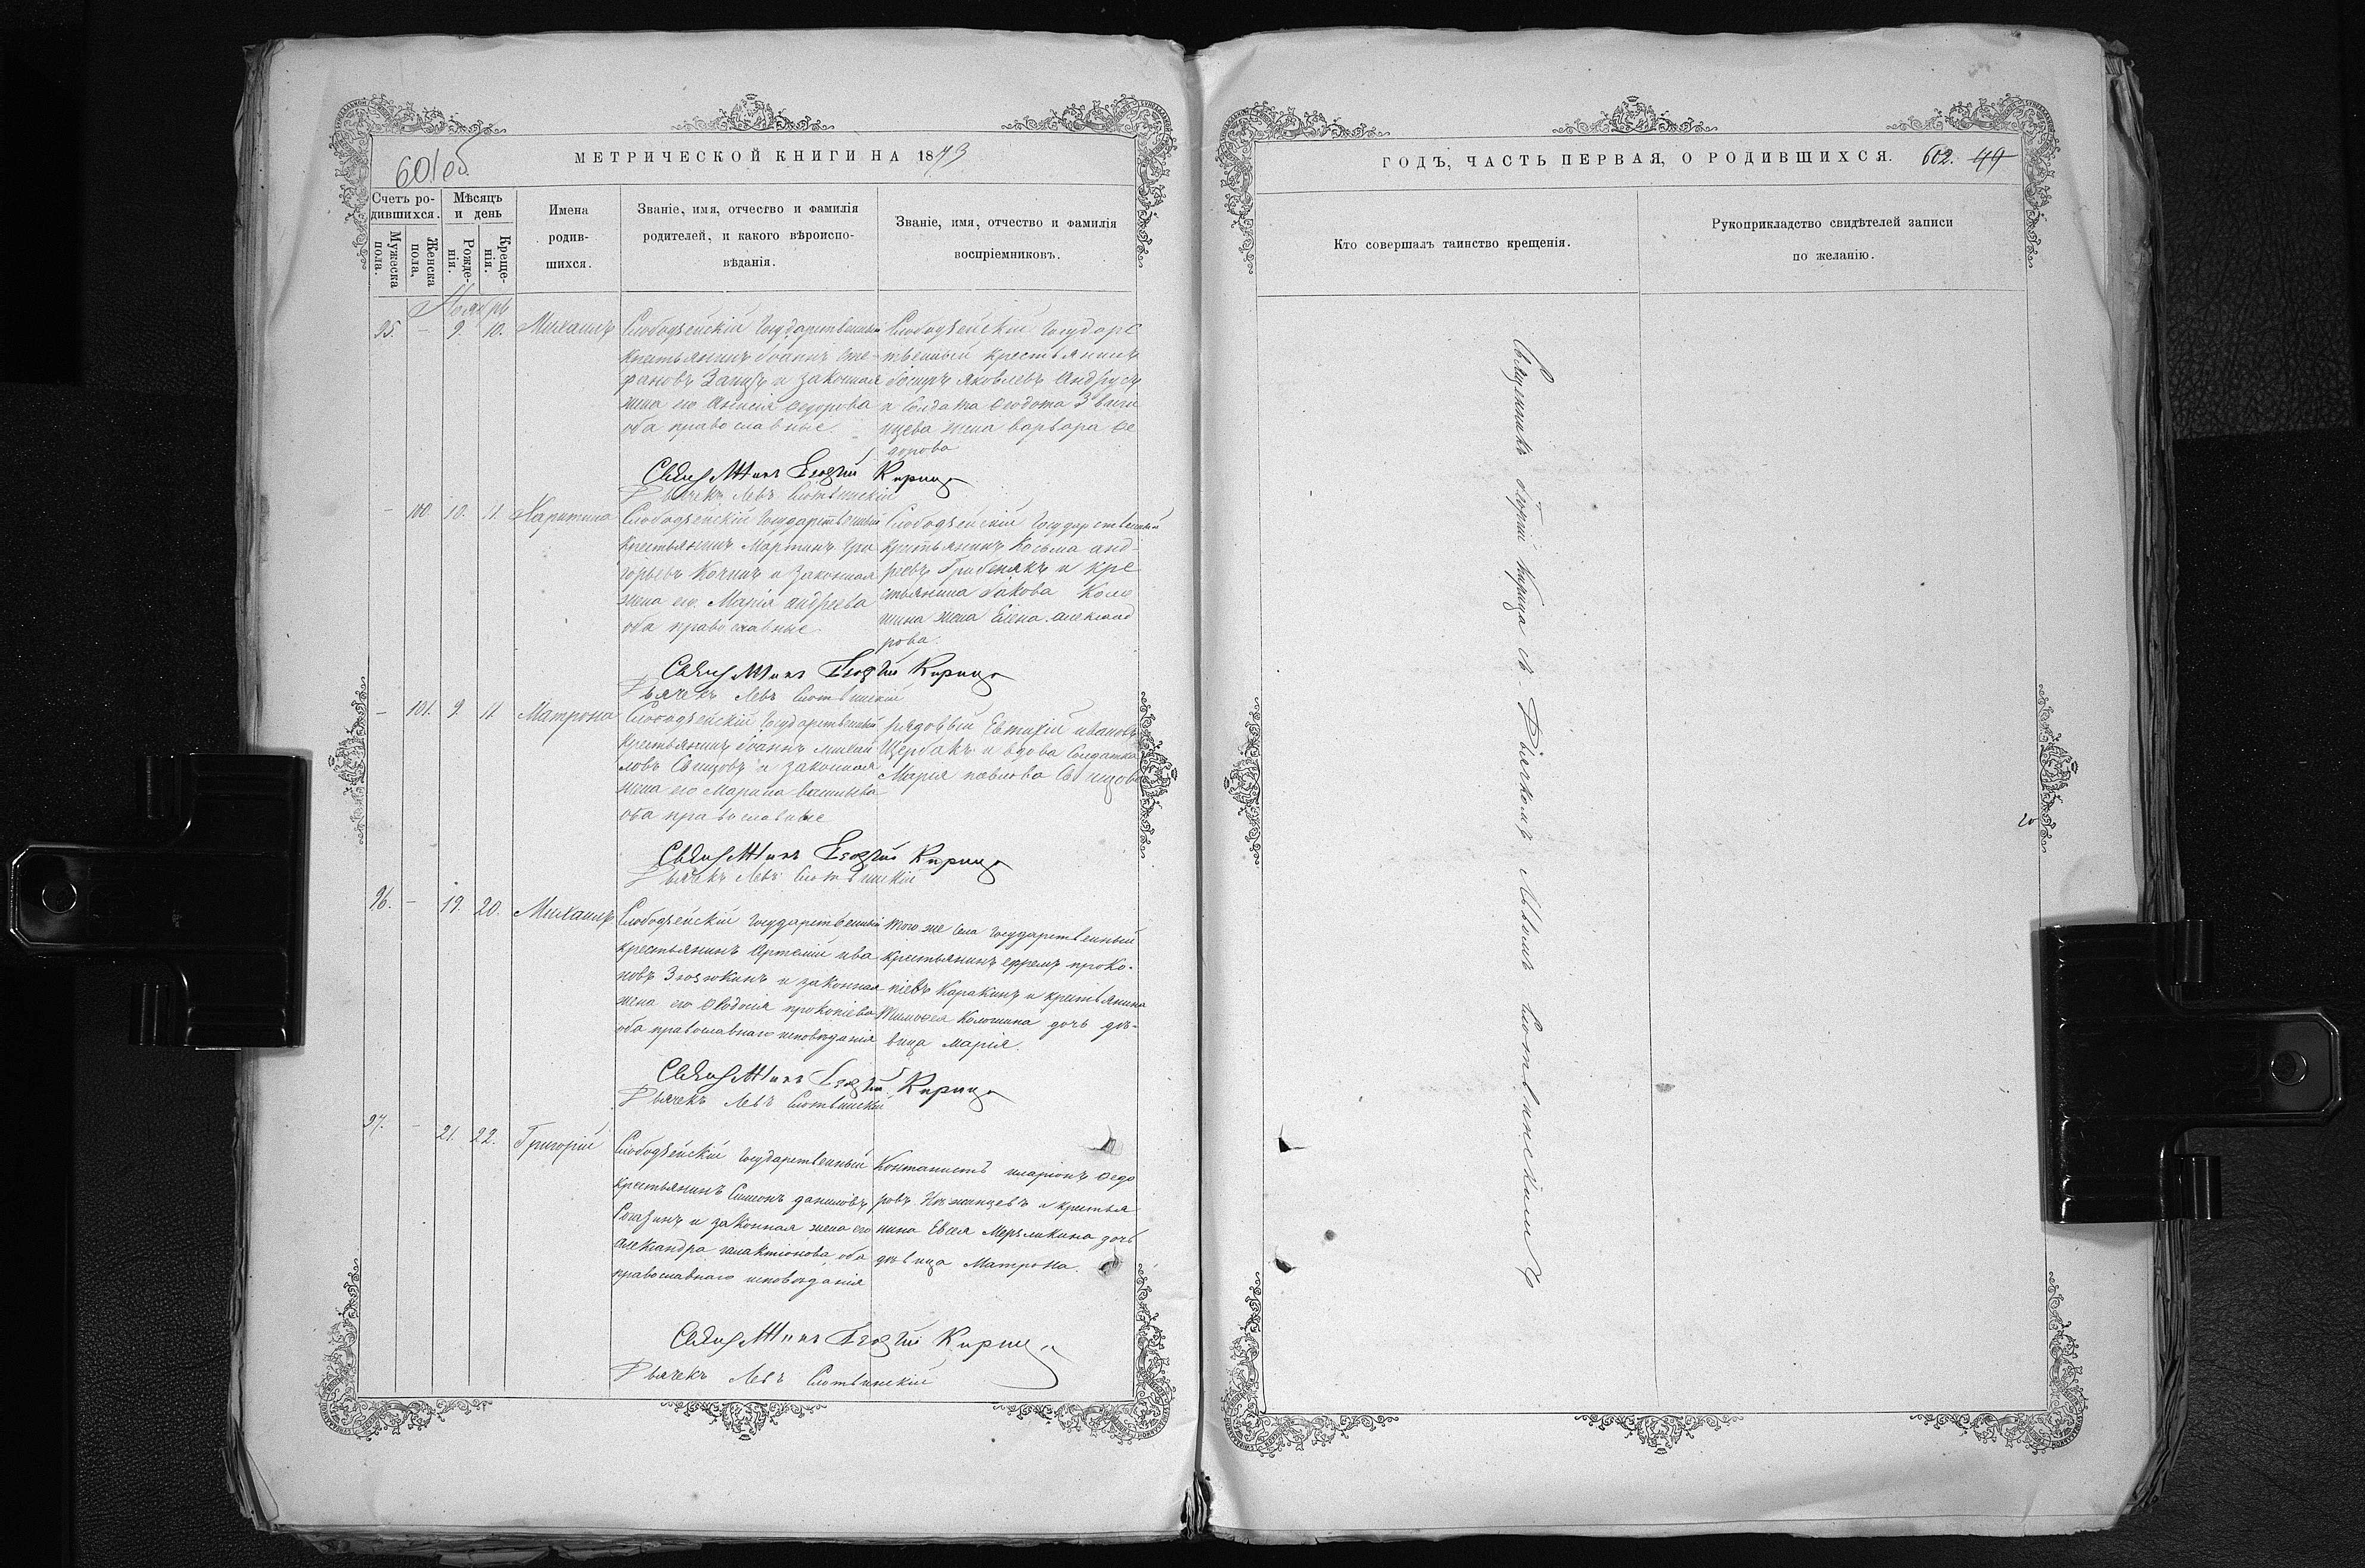 601об
МЕТРИЧЕСКОЙ КНИГИ НА 1873
Счетъ ро-
дившихся.
Мужеска пола.
Женска пола,
Мѣсяцъ
и день
Рожде-
нія.
Креще-
нія.
Имена
родив-
шихся.
Званіе, имя, отчество и фамилія
родителей, и какого вѣроиспо-
вѣданія.
Званіе, имя, отчество и фамилія
воспріемниковъ.
Ноябрь
95. – 9. 10. Михаилъ
Слободзейскій государственный
крестьянинъ Іоаннъ Сте-
фановъ и законная
жена его Анисія Ѳедорова
оба православные.
Слободзейскій государс
твенный крестьянинъ
Яковлевъ Андрусъ
и солдата Ѳеодота Звяги
нцева жена Варвара Ѳе
дорова
Священникъ Георгій Кирица
Дьячекъ Левъ Слотвинскій
– 100 10. 11. Харитина
Слободзейскій государственный
крестьянинъ Мартинъ Гри
горьевъ и законная
жена его Марія Андреева
оба православные.
Слободзейскій государственный
крестьянинъ Косьма Анд-
реевъ Грибенякъ и кре
стьянина Іакова Коло
шина жена Елена Александ
рова.
Священникъ Георгій Кирица
Дьячекъ Левъ Слотвинскій
– 101. 9. 11 Матрона
Слободзейскій государственный
крестьянинъ Іоаннъ Михай
ловъ Свищовъ и законная
жена его Марина Васильева
оба православные
рядовый Евтихій Ивановъ
Щербакъ и вдова солдатка
Марія Павлова Свищова
Священникъ Георгій Кирица
Дьячекъ Левъ Слотвинскій
96. – 19. 20. Михаилъ
Слободзейскій государственный
крестьянинъ Артемій Ива
новъ Зюзюкинъ и законная
жена его Ѳеодосія Прокопіева
оба православнаго исповѣданія
того же села государственный
крестьянинъ Ефремъ Проко-
піевъ Каракинъ и крестьянина
Тимоѳея Колошина дочь дѣ-
вица Марія.
Священникъ Георгій Кирица
Дьячекъ Левъ Слотвинскій
97. – 21. 22. Григорій
Слободзейскій государственный
крестьянинъ Симеонъ Даниловъ
и законная жена его
Александра Галактіонова оба
православнаго исповѣданія
Иларіонъ Ѳедо
ровъ и крестья
нина Евсея Мерзликина дочь
дѣвица Матрона.
Священникъ Георгій Кирица
Дьячекъ Левъ Слотвинскій
ГОДЪ, ЧАСТЬ ПЕРВАЯ, О РОДИВШИХСЯ. 602. 49
Кто совершалъ таинство крещенія.
Рукоприкладство свидѣтелей записи
по желанію.
Священникъ Георгій Кирица съ Дьячкомъ Львомъ Слотвинскимъ